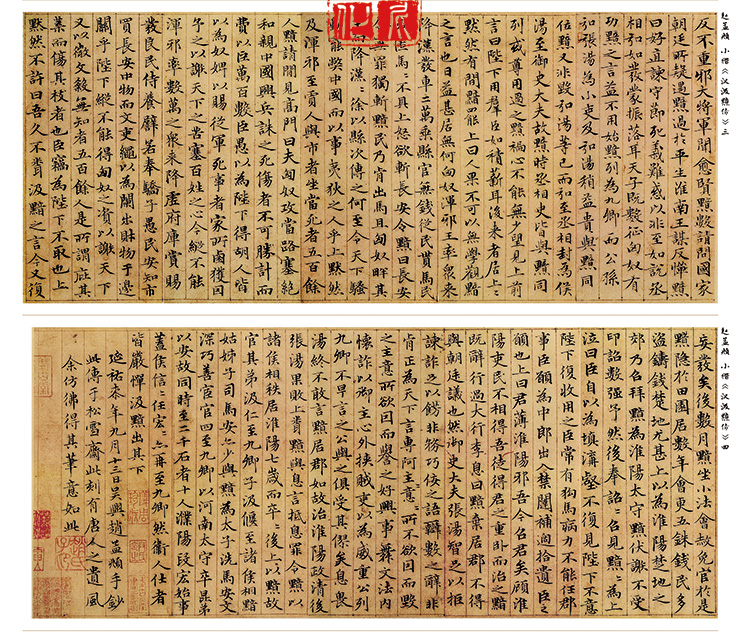 赵孟頫 小楷《汉汲黯传》三
反不重邪大將軍聞愈賢黯數請問國家
朝廷所疑遇黯過於平生淮南王謀反憚黯
曰好直諫守節死義難惑以非至如說丞
相弘如發蒙振落耳天子既數征匈奴有
功黯之言益不用始黯列為九卿而公孫
弘張湯為小吏及弘湯稍益貴與黯同
位黯又非毀弘湯等已而弘至丞相封為侯
湯至御史大夫故黯時丞相史皆與黯同
列或尊用過之黯褊心不能無少望見上前
言曰陛下用羣臣如積薪耳後來者居上上
默然有間黯罷上曰人果不可以無學觀黯
之言也日益甚居無何匈奴渾邪王率眾來
降漢發車二萬乘縣官無錢從民貰馬民
馬馬不具上怒欲斬長安令黯曰長安
無罪獨斬黯民乃肯出馬且匈奴畔其
而降漢漢徐以縣次傳之何至令天下騷
弊中國而以事夷狄之人乎上默然
及渾邪至賈人與市者坐當死者五百餘
人黯請間見高門曰夫匈奴攻當路塞絕
和親中國興兵誅之死傷者不可勝計而
費以巨萬百數臣愚以為陛下得胡人皆
以為奴婢以賜從軍死事者家所鹵獲因
予之以謝天下之苦塞百姓之心今縱不能
渾邪率數萬之眾來降虛府庫賞賜
發良民侍養譬若奉驕子愚民安知市
買長安中物而文吏繩以為闌出財物于邊
關乎陛下縱不能得匈奴之資以謝天下
又以微文殺無知者五百餘人是所謂庇其
葉而傷其枝者也臣竊為陛下不取也上
默然不許曰吾久不聞汲黯之言今又復
赵孟頫 小楷《汉汲黯传》四
妄發矣後數月黯坐小法會赦免官於是
黯隱於田園居數年會更五銖錢民多
盜鑄錢楚地尤甚上以為淮陽楚地之
郊乃召拜黯為淮陽太守黯伏謝不受
印詔數強予然後奉詔詔召見黯黯為上
泣曰臣自以為填溝壑不復見陛下不意
陛下復收用之臣常有狗馬病力不能任郡
事臣願為中郎出入禁闥補過拾遺臣之
願也上曰君薄淮陽邪吾今召君矣顧淮
陽吏民不相得吾徒得君之重臥而治之黯
既辭行過大行李息曰黯棄居郡不得
與朝廷議也然御史大夫張湯智足以拒
諫詐足以飾非務巧佞之語辯數之辭非
肯正為天下言專阿主意主意所不欲因而毀
之主意所欲因而譽之好興事舞文法內
懷詐以御主心外挾賊吏以為威重公列
九卿不早言之公與之俱受其僇矣息畏
湯終不敢言黯居郡如故治淮陽政清後
張湯果敗上聞黯與息言抵息罪令黯以
諸侯相秩居淮陽七歲而卒卒後上以黯故
官其弟汲仁至九卿子汲偃至諸侯相黯
姑姊子司馬安亦少與黯為太子洗馬安文
深巧善宦官四至九卿以河南太守卒昆弟
以安故同時至二千石者十人濮陽段宏始事
蓋侯信信任宏宏亦再至九卿然衛人仕者
皆嚴憚汲黯出其下
延祐七年九月十三日吳興趙孟頫手鈔
此傳于松雪齋此刻有唐人之遺風
余仿佛得其筆意如此